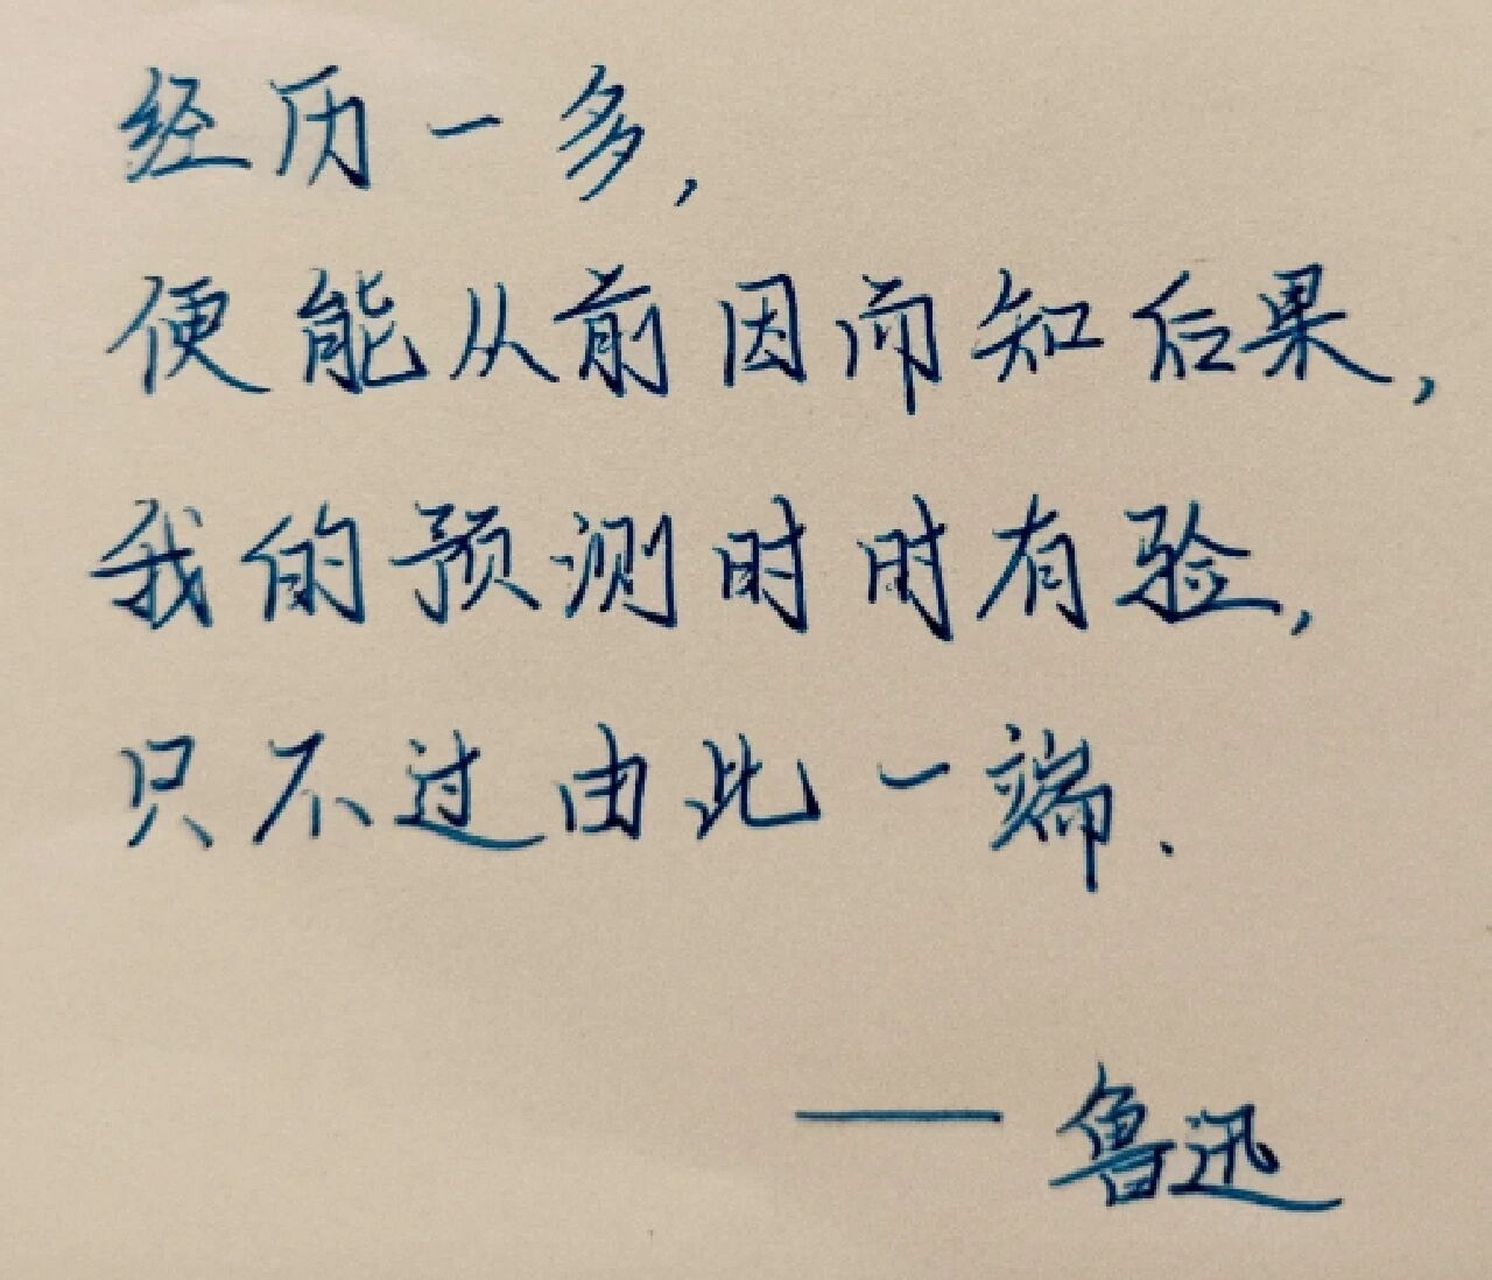 经历一多,
便能从前因而知后果,
我的预测时时有验,
只不过由此一端.
——鲁迅